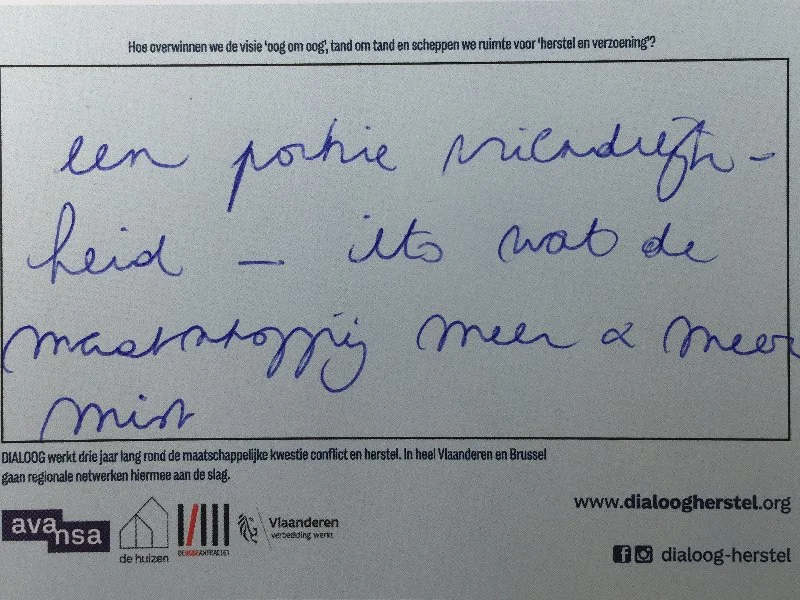 Hoe overwinnen we de visie 'oog om oog', tand om tand en scheppen we ruimte voor 'herstel en verzoening'?
een portie vriendelijk-
heid — iets wat de
maatschappij meer & meer
mist
DIALOOG werkt drie jaar lang rond de maatschappelijke kwestie conflict en herstel. In heel Vlaanderen en Brussel
gaan regionale netwerken hiermee aan de slag.
avansa
de huizen
DE RODE ANTRACIET
Vlaanderen
verbeelding werkt
www.dialoogherstel.org
dialoog-herstel